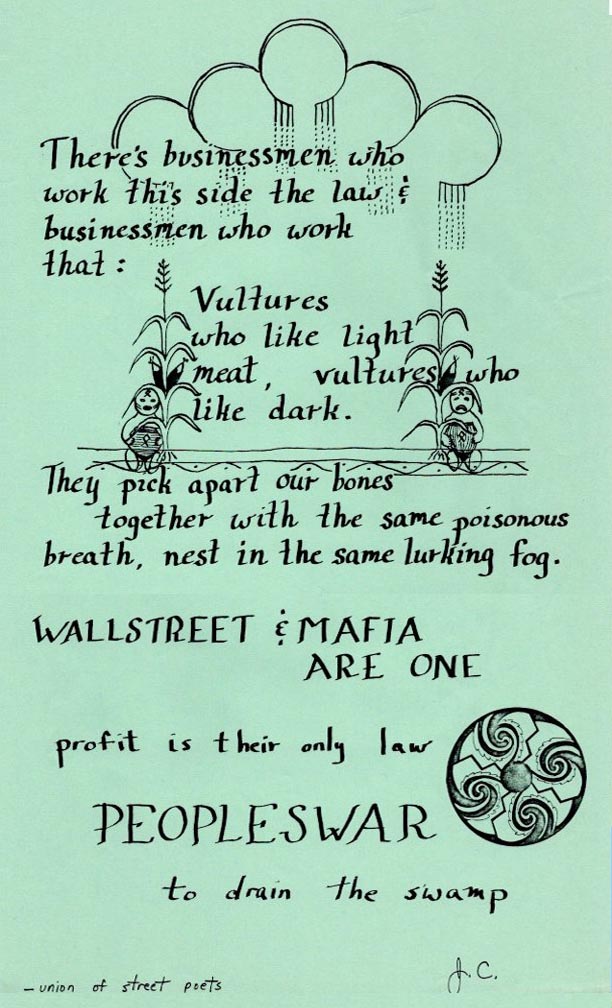 There's businessmen who
work this side the law &
businessmen who work
that:
Vultures
who like light
meat, vultures who
like dark.
They pick apart our bones
together with the same poisonous
breath, nest in the same lurking fog.
WALLSTREET & MAFIA
ARE ONE
profit is their only law
PEOPLESWAR
to drain the swamp
J.C.
—union of street poets